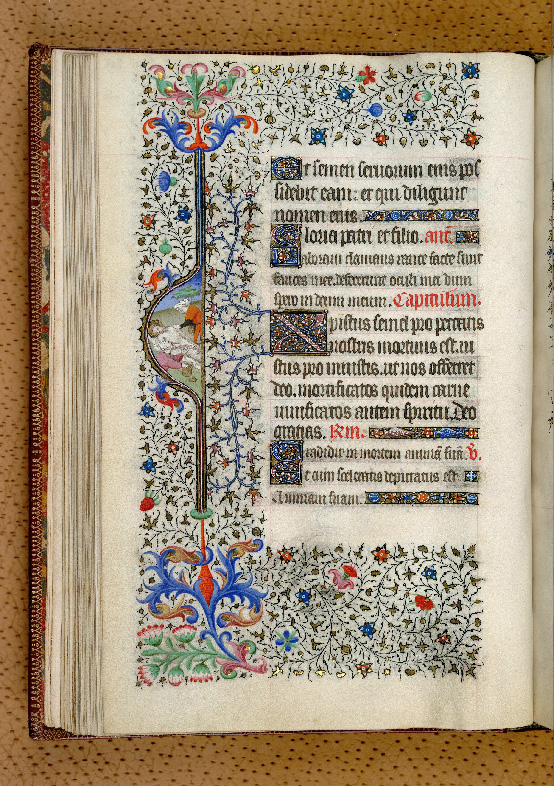 Et semen seruorum eius pos
sidebit eam: et qui diligunt
nomen eius.
Gloria patri et filio. ant.
Laboraui clamans rauce facte sunt
fauces mee. defecerunt oculi mei dum
spero in deum meum. Capitulum.
Xpistus semel pro peccatis
nostris mortuus est. iu
stus pro iniustis. ut nos offerret
deo. mortificatos quidem carne
uiuificatos autem spiritu. Deo
gratias. Rm.
Tradidit in mortem animam suam. V.
Et cum sceleratis deputatus est.
Animam suam.